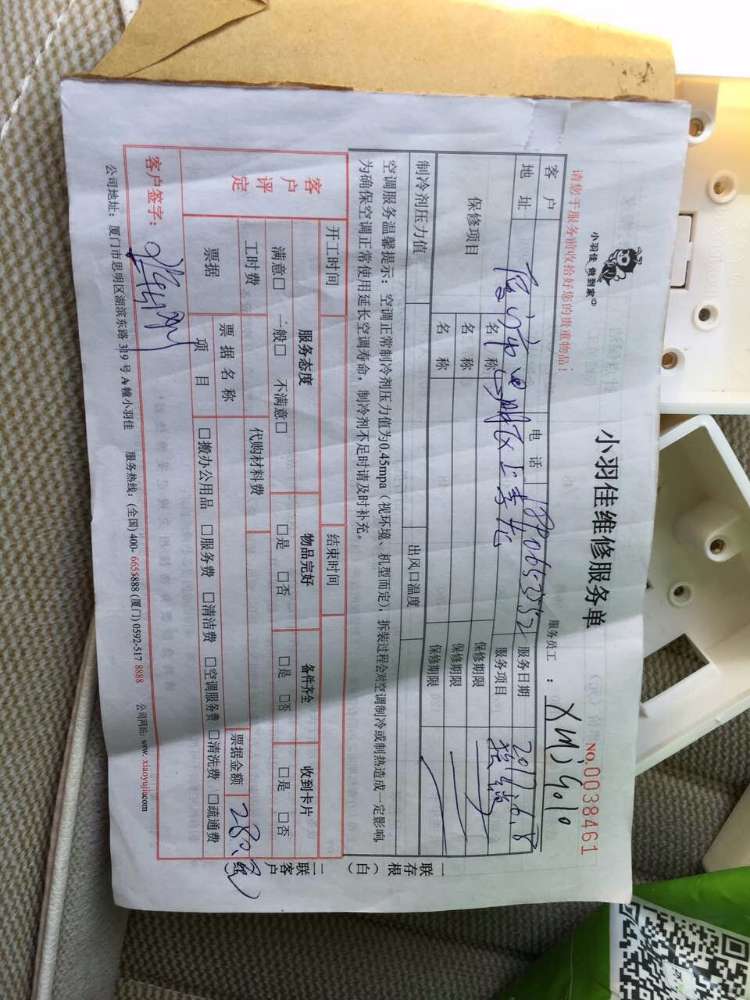 小羽佳 您到家
小羽佳维修服务单
NO.0038461
请您于服务前收拾好您的贵重物品!
服务员工:XMJ5010
客户 电话 服务日期 2017.6.8
地址 厦门市思明区上李 服务项目
保修项目 名称 保修期限
名称 保修期限
名称 保修期限
制冷剂压力值 出风口温度
空调服务温馨提示:空调正常制冷剂压力值为0.45mpa(视环境、机型而定),拆装过程会对空调制冷或制热造成一定影响,
为确保空调正常使用延长空调寿命,制冷剂不足时请及时补充。
开工时间 结束时间
客户评定 服务态度 物品完好 备件齐全 收到卡片
满意□ 一般□ 不满意□ □是 □否 □是 □否 □是 □否
工时费 代购材料费
票据 票据名称 票据金额 280元
项目 □搬办公用品 □服务费 □清洁费 □空调服务费 □清洗费 □疏通费
客户签字:
公司地址:厦门市思明区湖滨东路319号A幢小羽佳 服务热线:(全国)400-6655888 (厦门)0592-5178888 公司网站:www.xiaoyujia.com
一联存根(白)
二联客户